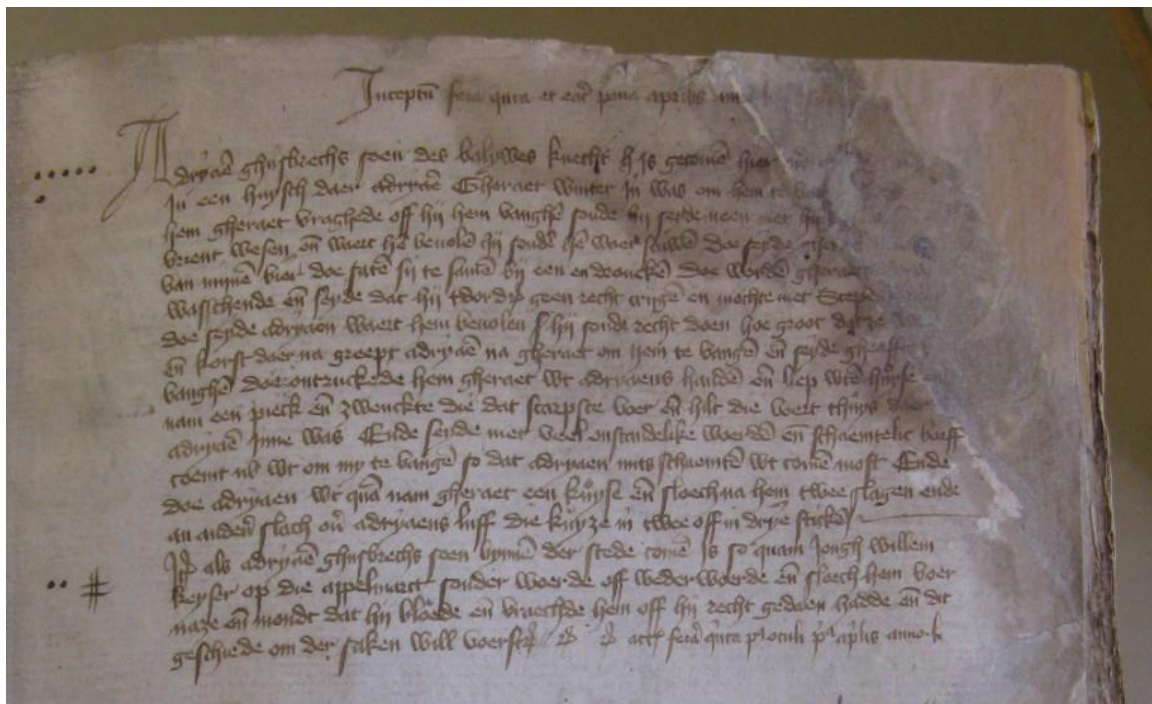 Inceptu feria quita et erat pma aprilis
Adryaē ghijsbrechs soen des baliuwes knecht is gecomē hier
In een huijsch daer adryaē Gheraet winter in was om hem te
hem gheraet vraghede off hij hem vanghē soude hij seyde neen met
verent wesen eñ waert hē bevolē hij soudē hē waerscuwē doe seyde
van mijnē bier doe satē sij te samē bij een en dronckē doe wordē gheraet
wasschende eñ seyde dat hij tdordr geen recht crijgē en mochte met
doe seyde adryaen waert hem bevolen hij soude recht doen hoe groot
eñ korst daer na greept adryaē na gheraet om hem te vangē eñ seyde
vanghē doe ontruckede hem gheraet wt adryaens handē eñ liep wtē huyse
nam een pieck eñ zwenckte die dat scarpste voer eñ hilt die voert thuys
adryaē inne was Ende seyde met veel onstandelike woerdē eñ schaemtelic boeff
coemt nv wt om my te vangē so dat adryaen mits schaemtē wt comē most Ende
doe adryaen wt quā nam gheraet een kuyse eñ sloech na hem twee slagen ende
an andeṙ slach adryaens lijff die kuyze in twee off in drye stickē
als adryaē ghijsbrechs soen bynnē der stede comē is so quam Jongh willem
keyser op die appelmarct sonder woerde off wederwoerde eñ sloech hem voer
naze eñ mondt dat hij bloede eñ vraechde hem off hij recht gedaen hadde eñ dit
geschiede om der saken will voerscr feria quita aplis anno